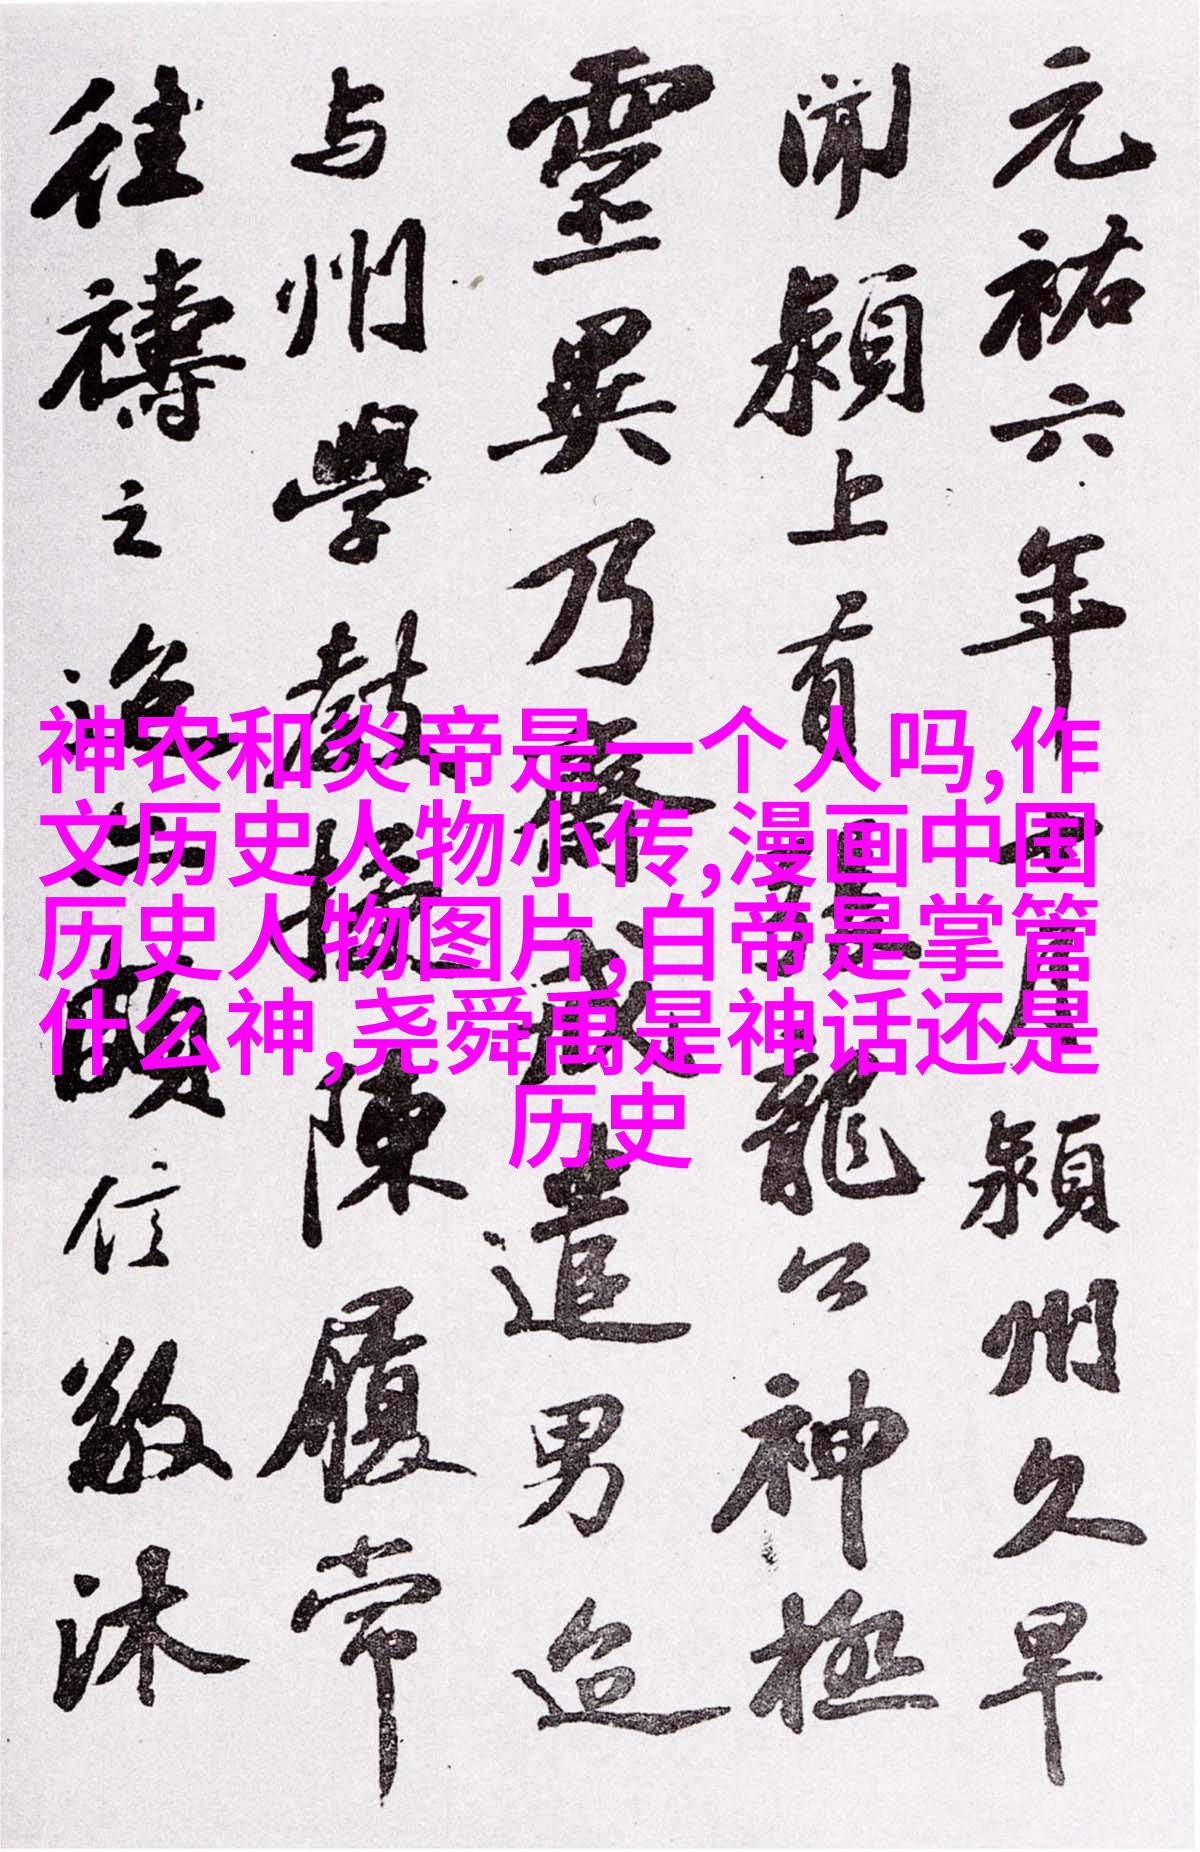 元祐六年十月潁州久旱
聞潁上有張龍公神極
靈異乃齋戒遣男迨
与州學教授陳履常
往禱之迨亦頗信敬沐
神农和炎帝是一个人吗,作
文历史人物小传,漫画中国
历史人物图片,白帝是掌管
什么神,尧舜禹是神话还是
历史